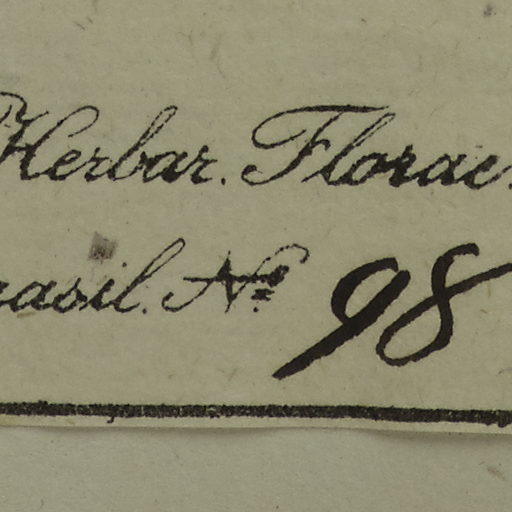 Herbar. Florae.
rasil. Nº 98